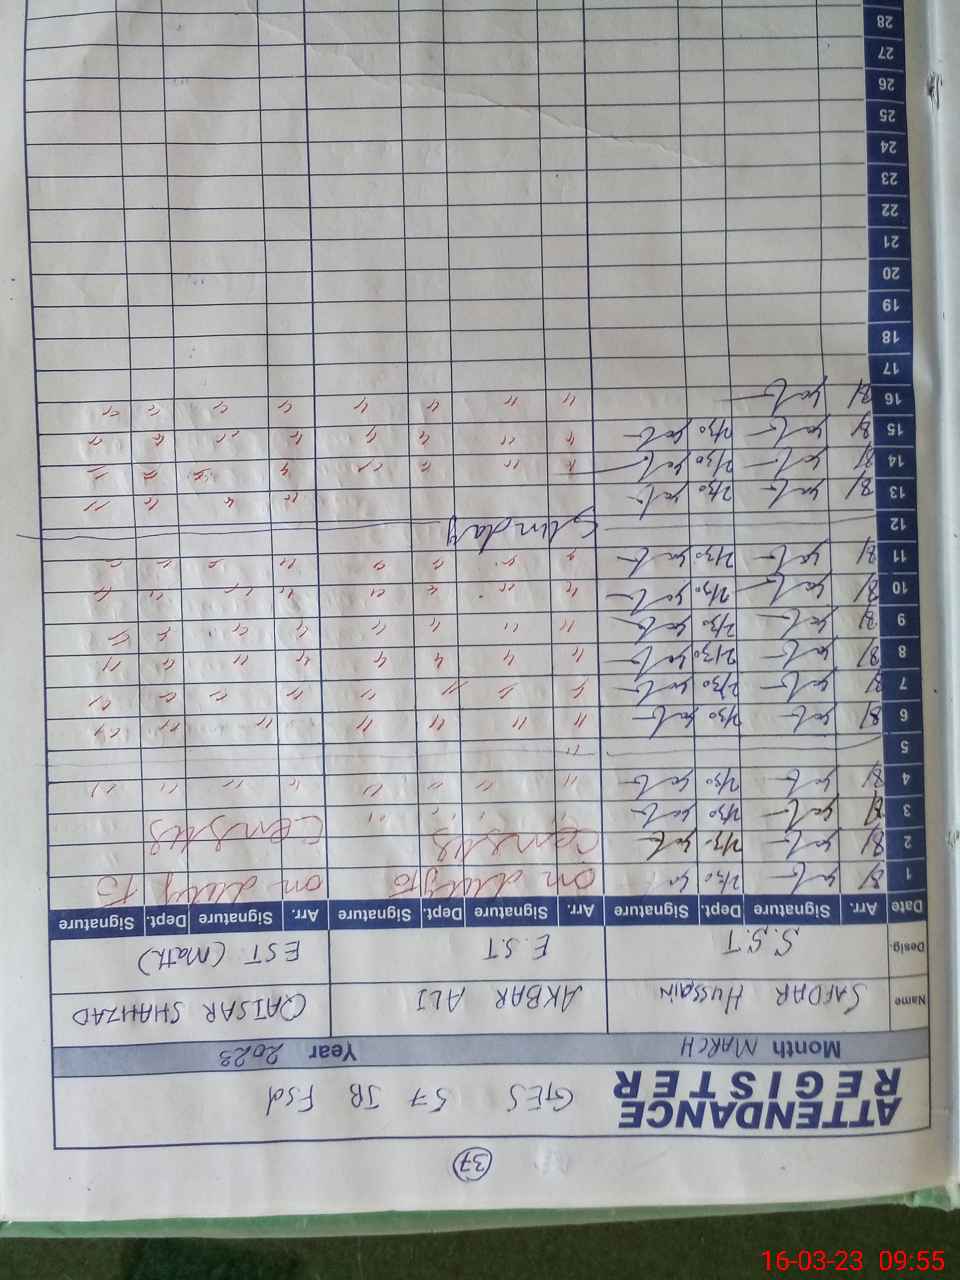 37
ATTENDANCE REGISTER
GES 57 JB Fsd
Month MARCH Year 2023
Name SAFDAR HUSSAIN AKBAR ALI QAISAR SHAHZAD
Desig. S.S.T E.S.T EST (Math)
Date Arr. Signature Dept. Signature Arr. Signature Dept. Signature Arr. Signature Dept. Signature
1 8/ 2/30 on duty to on duty to
2 8/ 2/30 Census Census
3 8/ 2/30 " "
4 8/ 2/30 " " " " " " " "
5 "
6 8/ 2/30 " " " " " " " "
7 8/ 2/30 " " " " " " " "
8 8/ 2/30 " " " " " " " "
9 8/ 2/30 " " " " " " " "
10 8/ 2/30 " " " " " " " "
11 8/ 2/30 " " " " " " " "
12 Sunday
13 8/ 2/30 " " " "
14 8/ 2/30 " " " " " " " "
15 8/ 2/30 " " " " " " " "
16 8/ " " " " " " " "
17
18
19
20
21
22
23
24
25
26
27
28
16-03-23 09:55